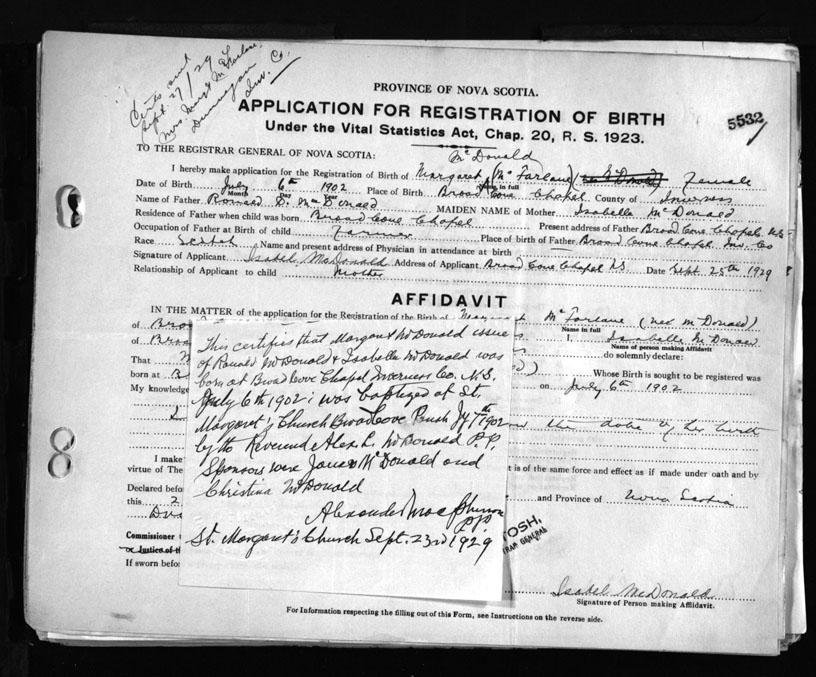 Certs out
Sept. 27/29
Mrs. Margt McFarlane
Dunvegan
Inv. Co.
PROVINCE OF NOVA SCOTIA.
APPLICATION FOR REGISTRATION OF BIRTH
Under the Vital Statistics Act, Chap. 20, R. S. 1923.
5532
TO THE REGISTRAR GENERAL OF NOVA SCOTIA:
McDonald
I hereby make application for the Registration of Birth of Margaret (McFarlane) Female
Name in full
Date of Birth July 6th 1902 Place of Birth Broad Cove Chapel County of Inverness
Month Day Year
Name of Father Ronald D. McDonald MAIDEN NAME of Mother Isabella McDonald
Residence of Father when child was born Broad Cove Chapel Present address of Father Broad Cove Chapel N.S.
Occupation of Father at Birth of child Farmer Place of birth of Father Broad Cove Chapel Inv. Co
Race Scotch Name and present address of Physician in attendance at birth
Signature of Applicant Isabel McDonald Address of Applicant Broad Cove Chapel N.S. Date Sept 25th 1929
Relationship of Applicant to child Mother
AFFIDAVIT
IN THE MATTER of the application for the Registration of the Birth of Margaret McFarlane (nee McDonald)
Name in full
of Bro
I, Isabelle McDonald
of Broa
Name of person making Affidavit
do solemnly declare:
That
Whose Birth is sought to be registered was
born at B
on July 6th 1902
My knowledge
the date of her birth
I make
t is of the same force and effect as if made under oath and by
virtue of The
Declared befor
this 2
and Province of Nova Scotia
TOSH,
TRAR GENERAL
Commissioner
Justice of th
If sworn befo
This certifies that Margaret McDonald issue
of Ronald McDonald & Isabella McDonald was
born at Broad Cove Chapel Inverness Co. N.S.
July 6th 1902; was baptized at St.
Margaret's Church Broad Cove Parish Jy 7th 1902
by the Reverend Alex. L. McDonald P.P.
Sponsors were James McDonald and
Christina McDonald
Alexander Macpherson
P.P.
St. Margaret's Church Sept. 23rd 1929
Isabel McDonald
Signature of Person making Affidavit.
For Information respecting the filling out of this Form, see Instructions on the reverse side.